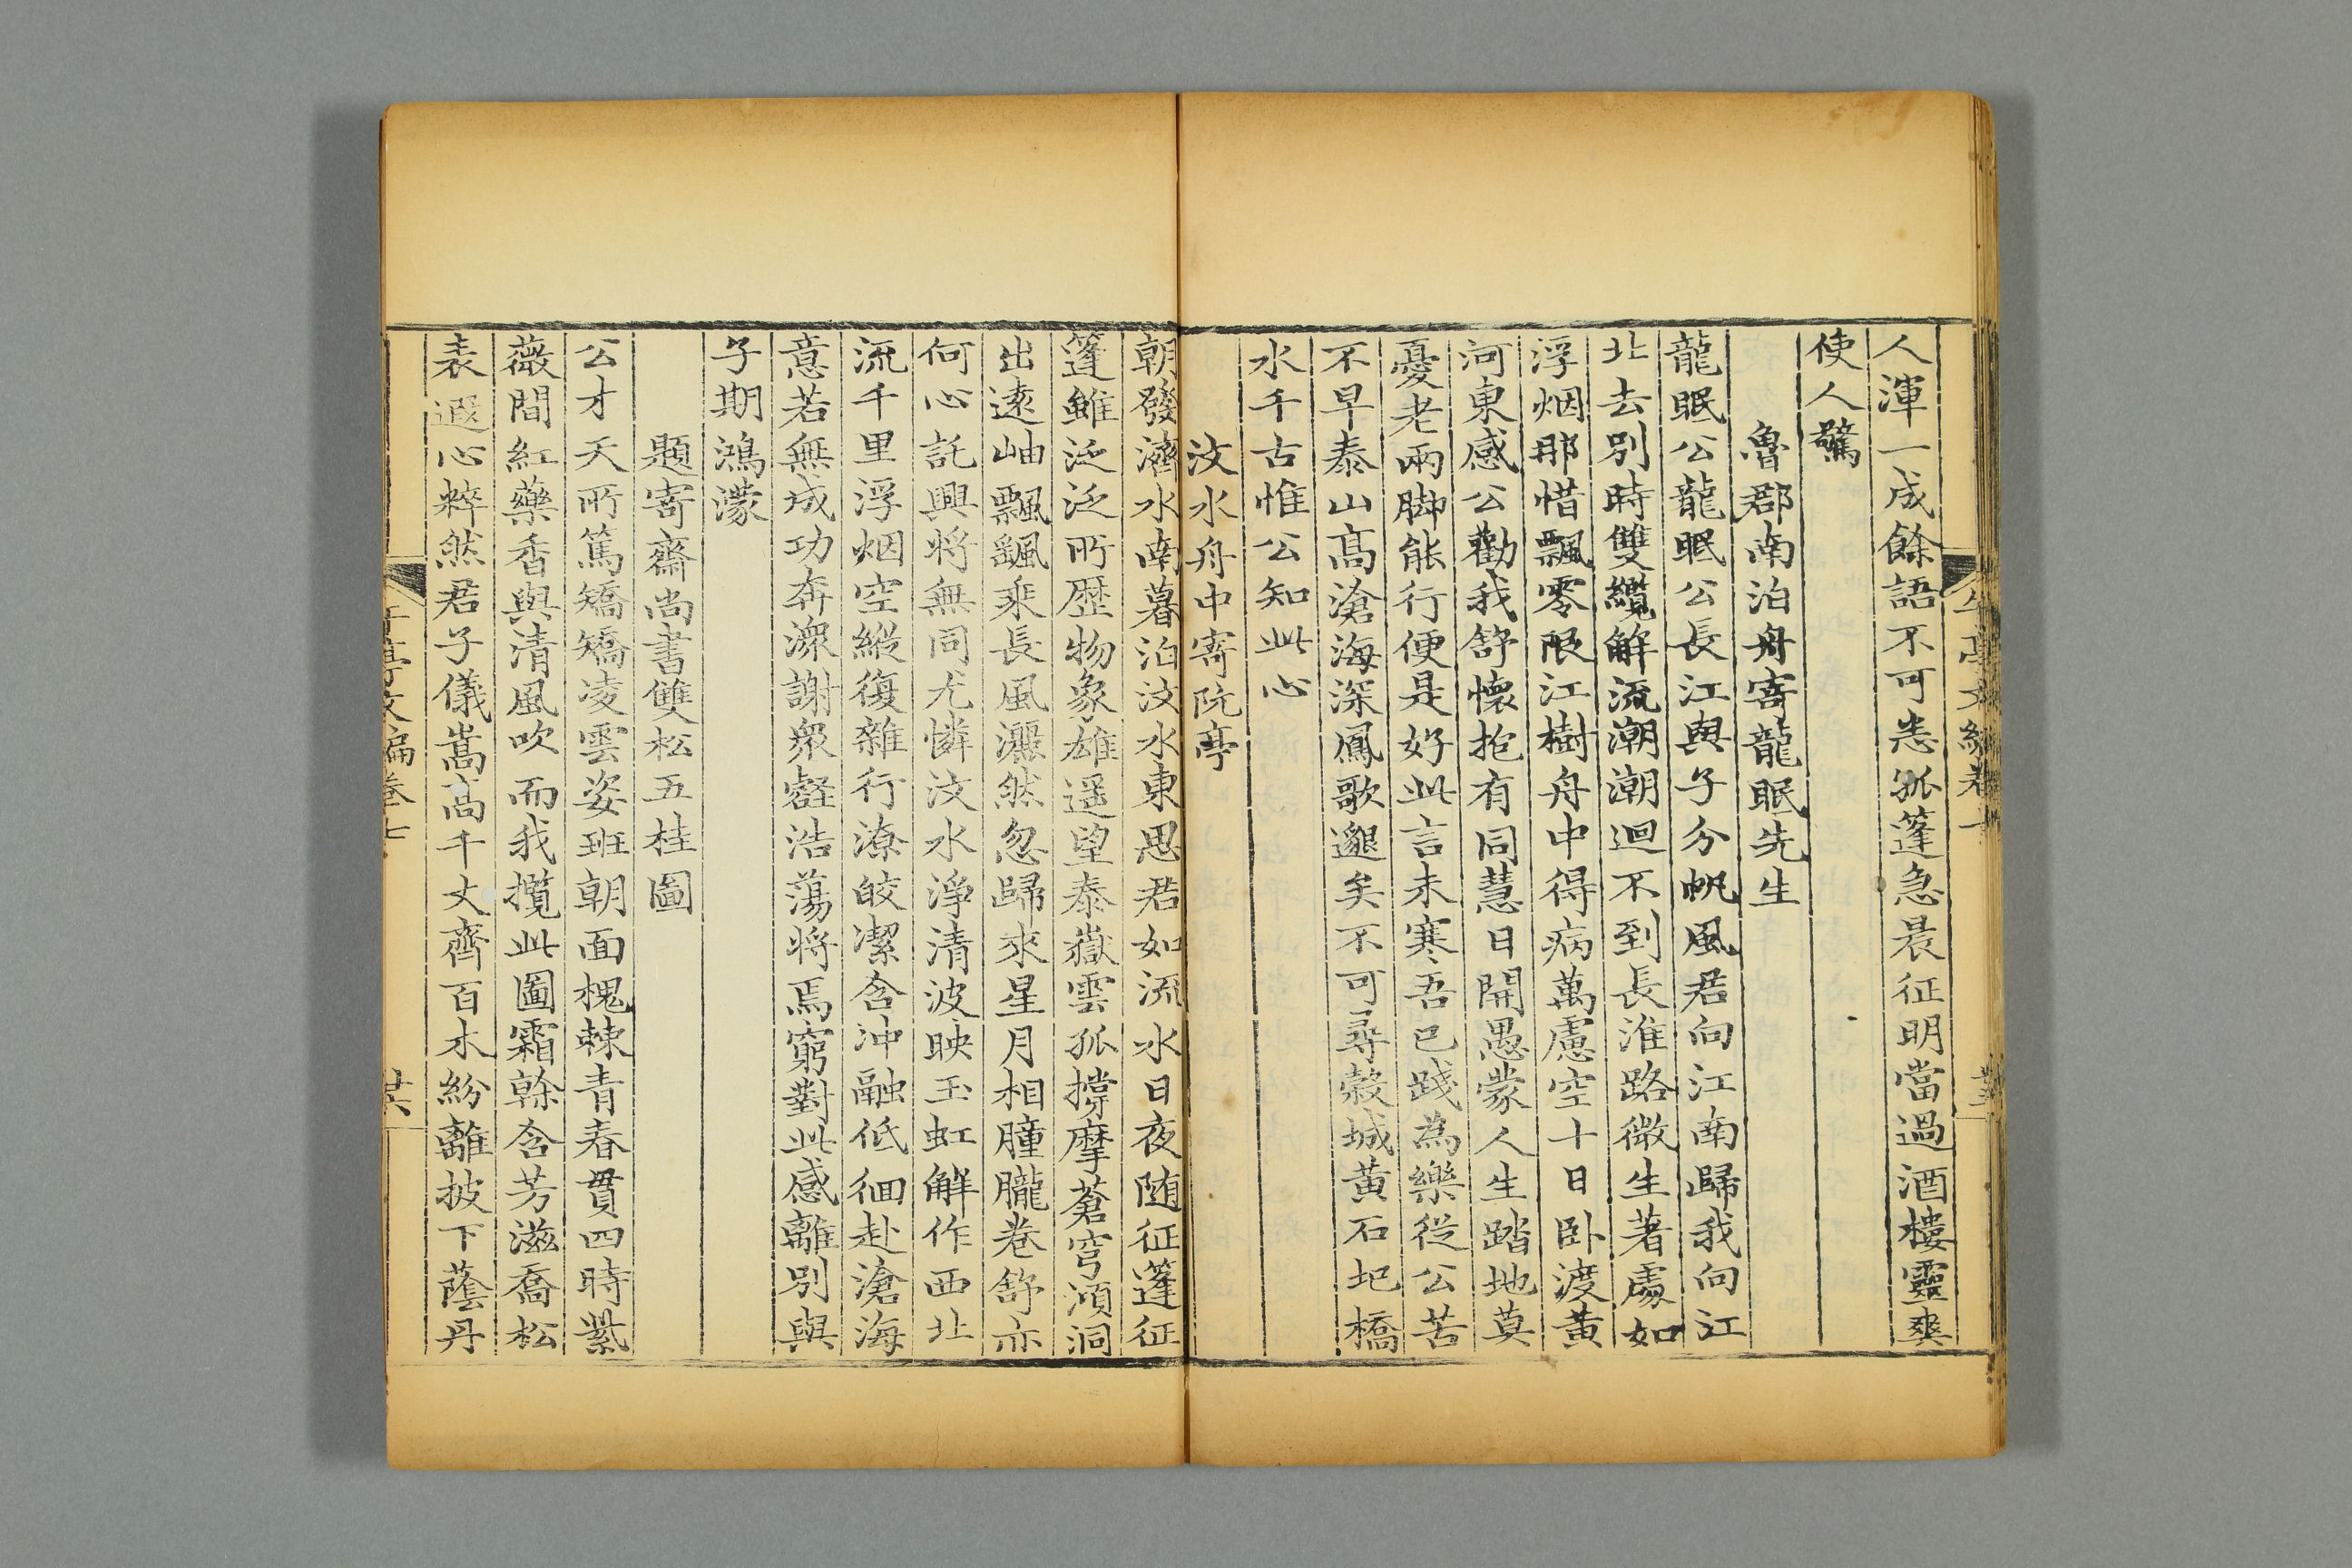 人渾一成餘語不可悉孤蓬急晨征明當過酒樓靈爽
使人驚
魯郡南泊舟寄龍眠先生
龍眠公龍眠公長江與子分帆風君向江南歸我向江
北去別時雙纜解流潮潮迴不到長淮路微生著處如
浮烟那惜飄零限江樹舟中得病萬慮空十日卧渡黃
河東感公勸我舒懷抱有同慧日開愚蒙人生踏地莫
憂老兩脚能行便是好此言未寒吾已踐為樂從公苦
不早泰山高滄海深鳳歌邈矣不可尋榖城黃石圯橋
水千古惟公知此心
汶水舟中寄阮亭
朝發濟水南暮泊汶水東思君如流水日夜随征篷征
篷雖泛泛所歷物象雄遥望泰嶽雲孤撐摩蒼穹澒洞
出遠岫飄颻乘長風灑然忽歸來星月相朣朧卷舒亦
何心託興將無同尤憐汶水淨清波映玉虹解作西北
流千里浮烟空縱復雜行潦皎潔含沖融低徊赴滄海
意若無成功奔潈謝衆壑浩蕩将焉窮對此感離別與
子期鴻濛
題寄齋尚書雙松五桂圖
公才天所篤矯矯凌雲姿班朝面槐棘青春貫四時紫
薇間紅藥香與清風吹而我攬此圖霜榦含芳滋喬松
表遐心粹然君子儀嵩高千丈齊百木紛離披下蔭丹
午亭文編卷七
廿六